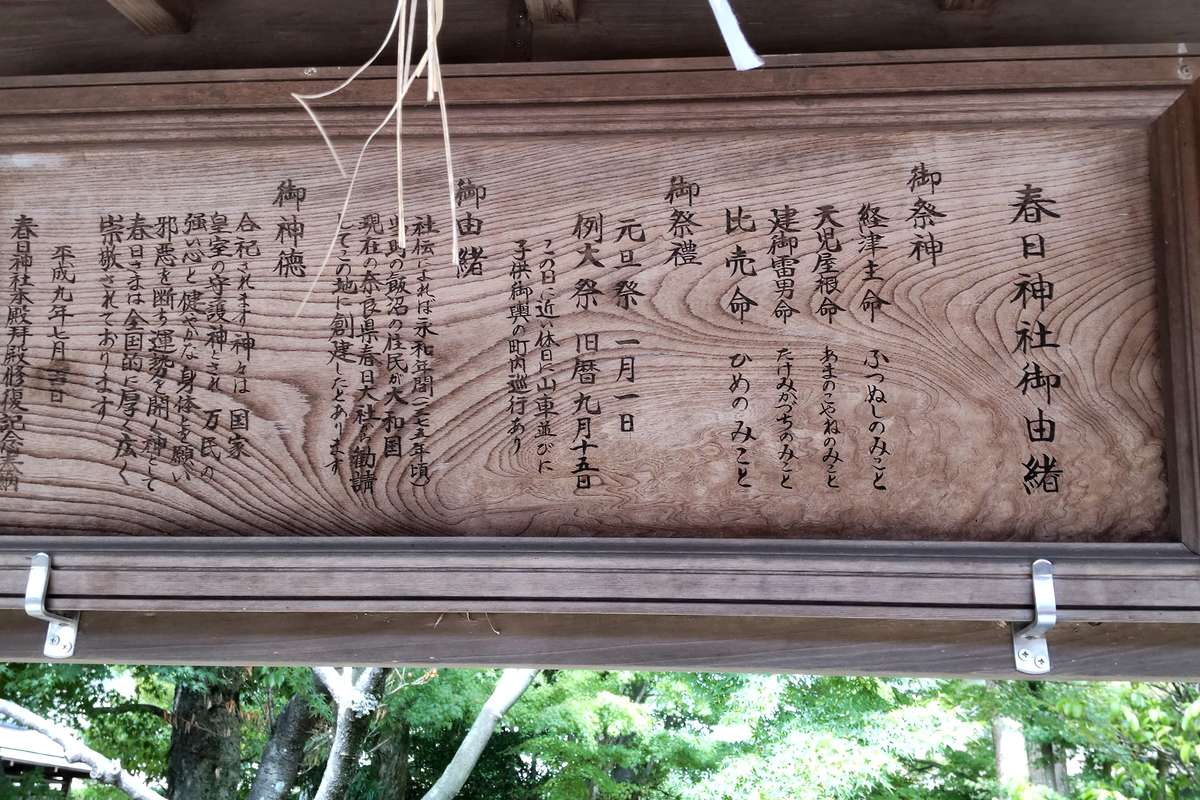 春日神社御由緒
御祭神
経津主命 ふつぬしのみこと
天児屋根命 あまのこやねのみこと
建御雷男命 たけみかづちのみこと
比売命 ひめのみこと
御祭禮
元旦祭 一月一日
例大祭 旧暦九月十五日
この日に近い休日に山車並びに
子供御輿の町内巡行あり
御由緒
社伝によれば永和年間(一三七五年頃)
の飯沼の住民が大和国
現在の奈良県春日大社から勧請
してこの地に創建したとあります
御神徳
合祀されます神々は 国家
皇室の守護神とされ 万民の
強い心と健やかな身体を願い
邪悪を断ち運勢を開く神として
春日さまは全国的に厚く広く
崇敬されております
平成九年七月 日
春日神社本殿拝殿修復記念奉納